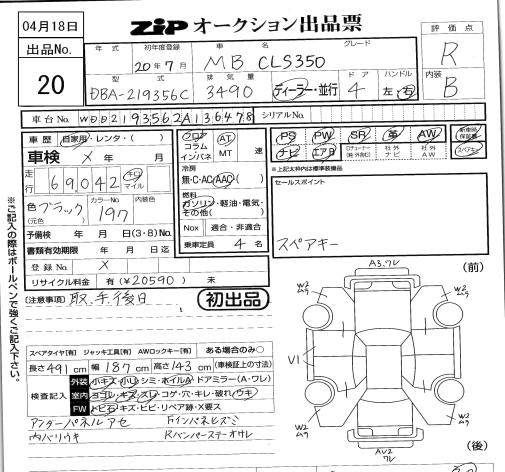 04月18日
ZiP オークション出品票
評価点
R
内装
B
出品No.
20
年式 初年度登録 車名 グレード
20年7月 MB CLS350
型式 排気量 ドア ハンドル
DBA-219356C 3490 ディーラー・並行 4 左・右
車台No. WDD2193562A136478 シリアルNo.
車歴 自家用・レンタ・( )
車検 × 年 月
走行 69,042 キロ マイル
色 ブラック カラーNo. 197 内装色
(元色)
予備検 年 月 日(3・8)No.
書類有効期限 年 月 日迄
登録No. ×
リサイクル料金 有(¥20590) 未
(注意事項) 取、手後日
初出品
フロア AT
コラム
インパネ MT 速
冷房
無・C・AC・AAC( )
燃料
ガソリン・軽油・電気・
その他( )
Nox 適合・非適合
乗車定員 4 名
PS PW SR 革 AW 新車時保証書
ナビ エアB 社外ナビ 社外AW スペアキー
※上記太枠内は標準装備品
セールスポイント
スペアキー
※ご記入の際はボールペンで強くご記入下さい。
スペアタイヤ[有] ジャッキ工具[有] AWロックキー[有] ある場合のみ○
長さ491cm 幅187cm 高さ143cm (車検証上の寸法)
検査記入
外装 小キズ・小凹・シミ・ホイルA・ドアミラー(A・ワレ)
室内 ヨゴレ・キズ・スレ・コゲ・穴・キレ・破れ・ウキ
FW トビ石・キズ・ヒビ・リペア跡・X要ス
アンダーパネル アセ
Fインパネヒズミ
内バリウキ
Rバンパーステーオサレ
A3.ワレ
(前)
W2
ムラ
W2
ムラ
V1
W2
ムラ
W2
ムラ
AV2
ワレ
(後)